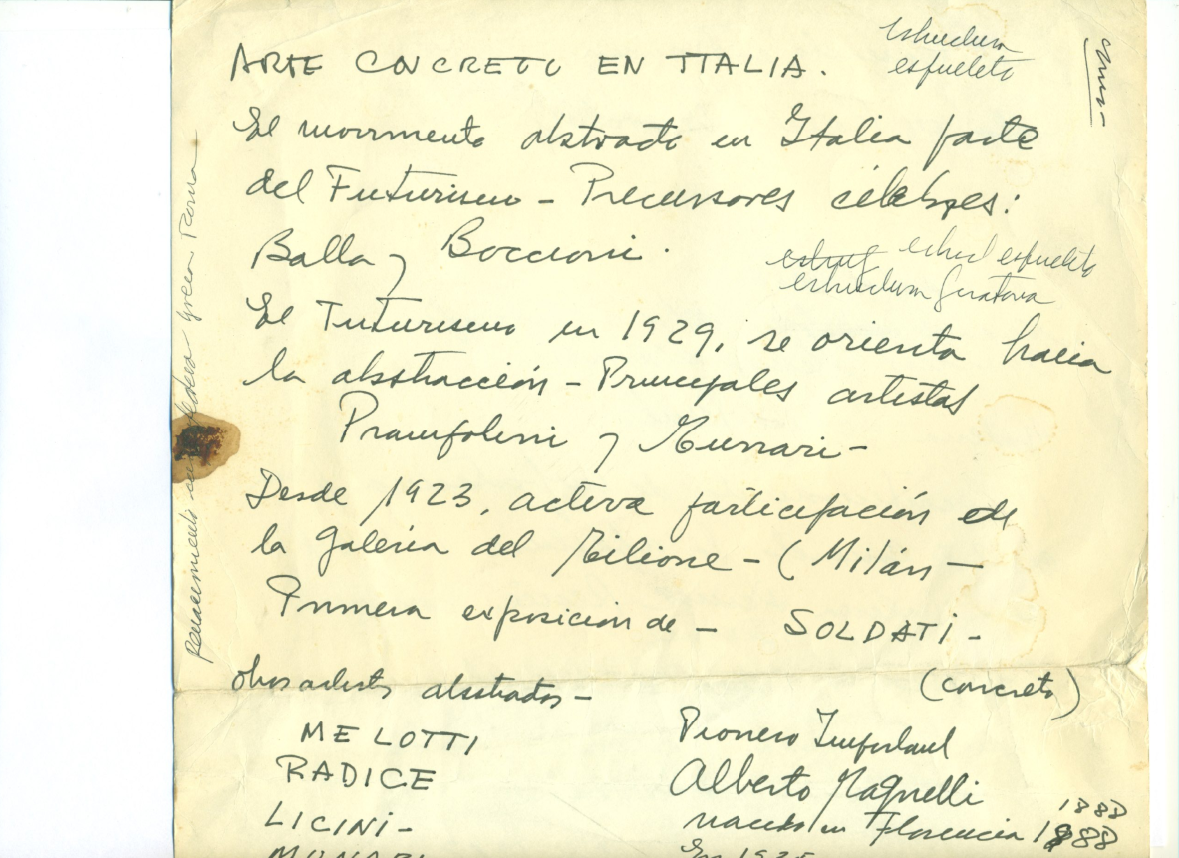 ARTE CONCRETO EN ITALIA.
estructura
esqueleto
El movimento abstracto en Italia parte
del Futurismo - Precursores célebres:
Balla y Boccioni.
estruct esqueleto
estructura giratoria
El Futurismo en 1929, se orienta hacia
la abstracción - Principales artistas
Prampolini y Munari -
Desde 1923, activa participación de
la galeria del Milione - (Milán -
Primera exposicion de - SOLDATI -
(concreto)
otros artistas abstractos -
MELOTTI
RADICE
LICINI -
MUNARI
Pionero Important
Alberto Magnelli
nacido en Florencia 1888
1888
En 1935
Renacimiento greca Roma